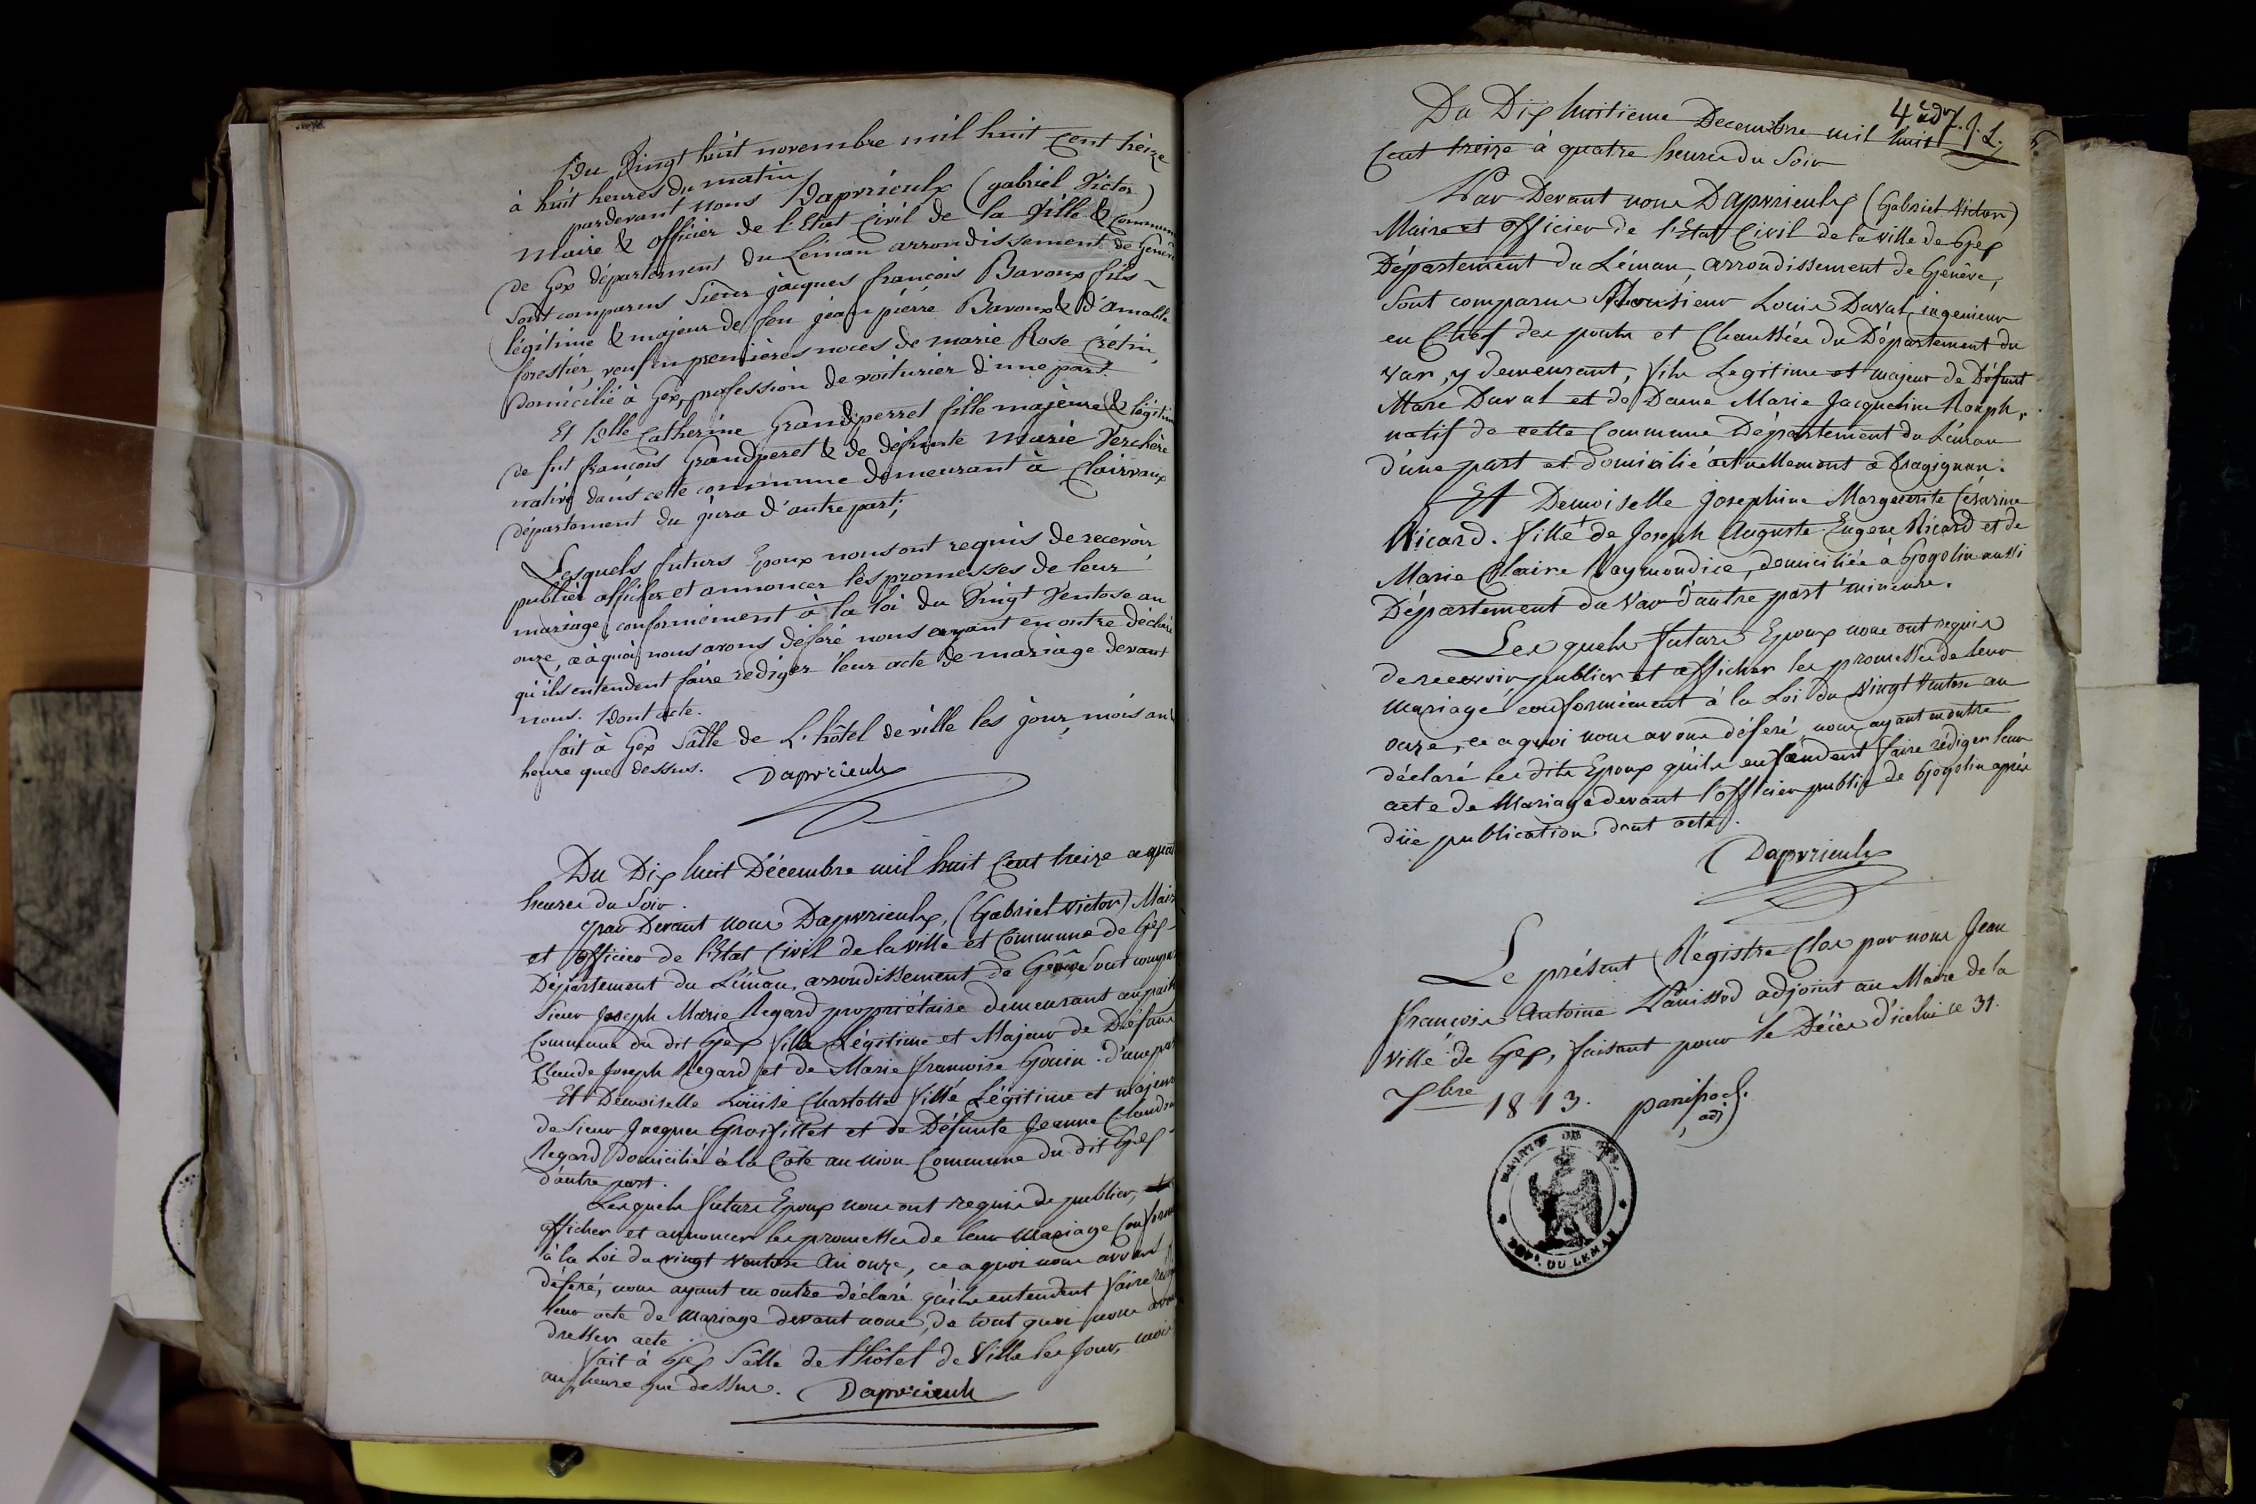 Du Vingt huit novembre mil huit cent treize
à huit heures du matin
pardevant nous Dapvrieulx (gabriel Victor)
Maire & officier de l'Etat Civil de la Ville & Commune
de Gex département du Léman arrondissement de Genève
Sont comparus Sieur jacques françois Bavoux fils
légitime & majeur de feu jéan piérre Bavoux & d'amable
forestier, veuf en premières noces de marie Rose Crétin,
Domicilié à Gex, profession de voiturier d'une part.
Et Dlle Catherine Grandperret fille majeure & légitime
de fut françois Grandperet & de défunte Marie Verchère
native dans cette commune demeurant à Clairvaux
département du jura d'autre part,
Lesquels futurs Epoux nous ont requis de recevoir
publier afficher et annoncer les promesses de leur
mariage conformément à la loi du Vingt Ventose an
onze, ce à quoi nous avons déferé nous ayant en outre déclaré
qu'ils entendent faire rediger leur acte de mariage devant
nous. Dont acte.
fait à Gex Sâlle de L'hôtel de ville les jour, mois an
heure que dessus. Dapvrieulx
Du Dix huit Décembre mil huit Cent treize a quatre
heures du Soir.
par Devant nous Dapvrieulx, (Gabriel victor) Maire
et officier de l'Etat Civil de la ville et Commune de Gex
Département du Léman, arrondissement de Genêve, Sont comparus
Sieur Joseph Marie Regard propriétaire demeurant au
Commune du dit Gex fils Légitime et Majeur de Défunt
Claude Joseph Regard et de Marie françoise Gouin. d'une part
Et Demoiselle Louise Charlotte fille Légitime et majeure
de Sieur Jacques Grosfillet et de Défunte Jeanne Claudine
Regard Domicilié à la Côte au Commune du dit Gex
d'autre part.
Lesquels futurs Epoux nous ont requis de publier,
afficher et annoncer les promesses de leur Mariage Conformément
à la Loi du vingt Ventose An onze, ce a quoi nous avons
déferé, nous ayant en outre déclaré qu'ils entendent faire rédiger
leur acte de Mariage devant nous, de tout quoi nous avons
dresser acte
fait à Gex Salle de l'hôtel de Ville les Jour, mois
an heure que dessus. Dapvrieulx
4 . J. L.
Du Dix huitieme Decembre mil huit
Cent treize à quatre heures du Soir
Par Devant nous Dapvrieulx (Gabriel Victor)
Maire et officier de l'Etat Civil de la ville de Gex
Département du Léman, arrondissement de Genêve,
Sont comparus Monsieur Louis Duval, ingenieur
en Chef des ponts et Chaussées du Département du
var, y demeurant, fils Legitime et majeur de Défunt
Marc Duval et de Dame Marie Jacqueline Rouph,
natif de cette Commune Département du Léman
d'une part et domicilié actuellement a Dragignan.
Et Demoiselle Josephine Marguerite Césarine
Ricard. fille de Joseph Auguste Eugene Ricard et de
Marie Claire Raymondice, domiciliée à Gogolin aussi
Département du Var d'autre part mineure.
Les quels futurs Epoux nous ont requis
de recevoir publier et afficher les promesses de leur
Mariage conformément à la Loi du Vingt Ventose an
onze, ce a quoi nous avons déferé, nous ayant en outre
déclaré les dits Epoux qu'ils entendent faire rédiger leur
acte de Mariage devant l'officier public de Gogolin après
düe publication. dont acte.
Dapvrieulx
Le présent Régistre Clos par nous Jean
françois Antoine Panissod adjoint au Maire de la
Ville de Gex, faisant pour le Décès d'icelui ce 31.
Xbre 1813. panissod.
adj
MAIRIE DE GEX.
DEPT. DU LEMAN